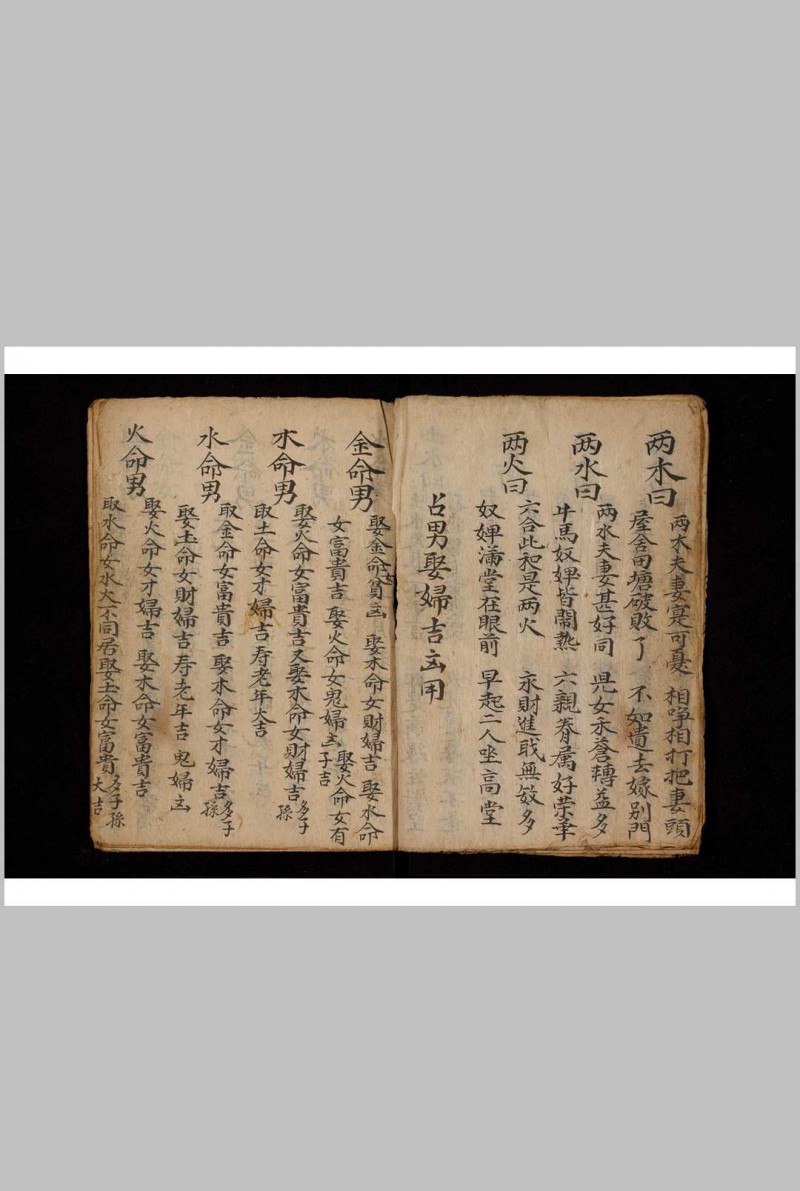 两木曰
两木夫妻寔可憂 相啀相打把妻頭
屋舍田塘破敗了 不如遣去嫁別門
两水曰
两水夫妻甚好同 児女永蒼轉益多
牛馬奴婢皆閙热 六親眷属好荣峯
两火曰
六合此和是两火 求財進戝無数多
奴婢满堂在眼前 早起二人坐高堂
占男娶婦吉㐫用
金命男
娶金命貧㐫 娶木命女財婦吉 娶水命
女富貴吉 娶火命女鬼婦㐫子吉 娶火命女有
木命男
娶火命女富貴吉又娶水命女財婦吉多子孫
取土命女才婦吉寿老年大吉
水命男
取金命女富貴吉 娶木命女才婦吉多子孫
娶土命女財婦吉寿老年吉 鬼婦㐫
火命男
娶火命女才婦吉 娶木命女富貴吉
取水命女水火不同居娶土命女富貴多子孫大吉